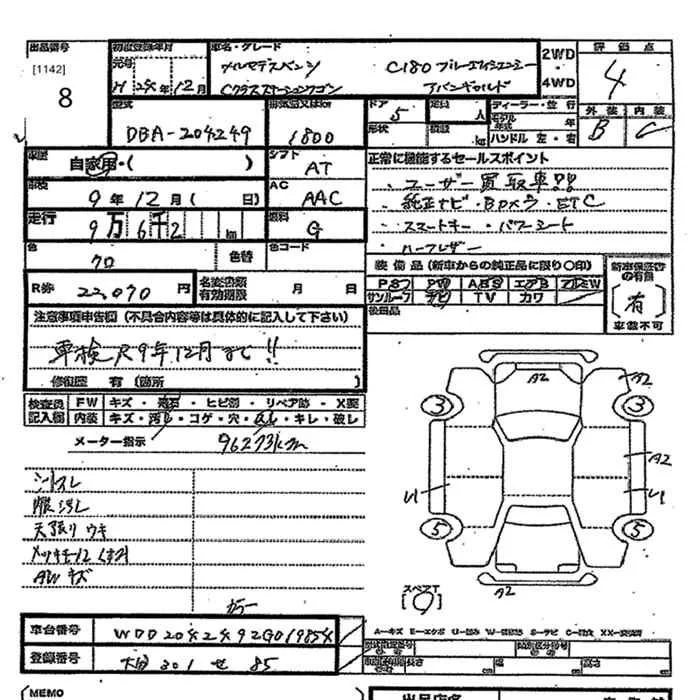 出品番号 初度登録年月 車名・グレード 2WD 評価点
[1142] 元号 メルセデスベンツ C180 ブルーエフィシェンシー ・ 4
8 H 24年 12月 Cクラスステーションワゴン アバンギャルド 4WD 外装 内装
型式 排気量又はkw ドア 5 定員 人 ディーラー・並行 B C
DBA-204249 1800 形状 積載 kg モデル年式 年
ハンドル 左・右
車歴 自家用・( ) シフト AT 正常に機能するセールスポイント
車検 9年 12月( 日) AC AAC ・ユーザー買取車!!
走行 9万 6千 2 km 燃料 G ・純正ナビ・BDカメラ・ETC
・スマートキー・パワーシート
色 クロ 色替 色コード ・ハーフレザー
装備品(新車からの純正品に限り○印) 新車保証書の有無
R券 22,070円 名変書類有効期限 月 日 PS PW ABS エアB アルミW (有)
サンルーフ ナビ TV カワ 車載不可
注意事項申告欄(不具合内容等は具体的に記入して下さい) 後日品
車検R9年12月まで!!
修復歴 有(箇所 )
検査員 FW キズ・飛石・ヒビ割・リペア跡・X要
記入欄 内装 キズ・汚れ・コゲ・穴・スレ・キレ・破レ
メーター指示 96273km
A2
A2
3 3
A2
U1 U1
5 5
A2
シートスレ
天張りウキ
メッキモールくすみ
AWキズ
スペアT
[○]
カラー
車台番号 WDD2042492G019854
A-キズ E-エクボ U-凹み W-補修跡 S-サビ C-腐食 XX-交換済
登録番号 大分 301 せ 85
型式指定番号 類別区分番号
長さ cm 幅 cm 高さ cm
(MEMO 出品店名